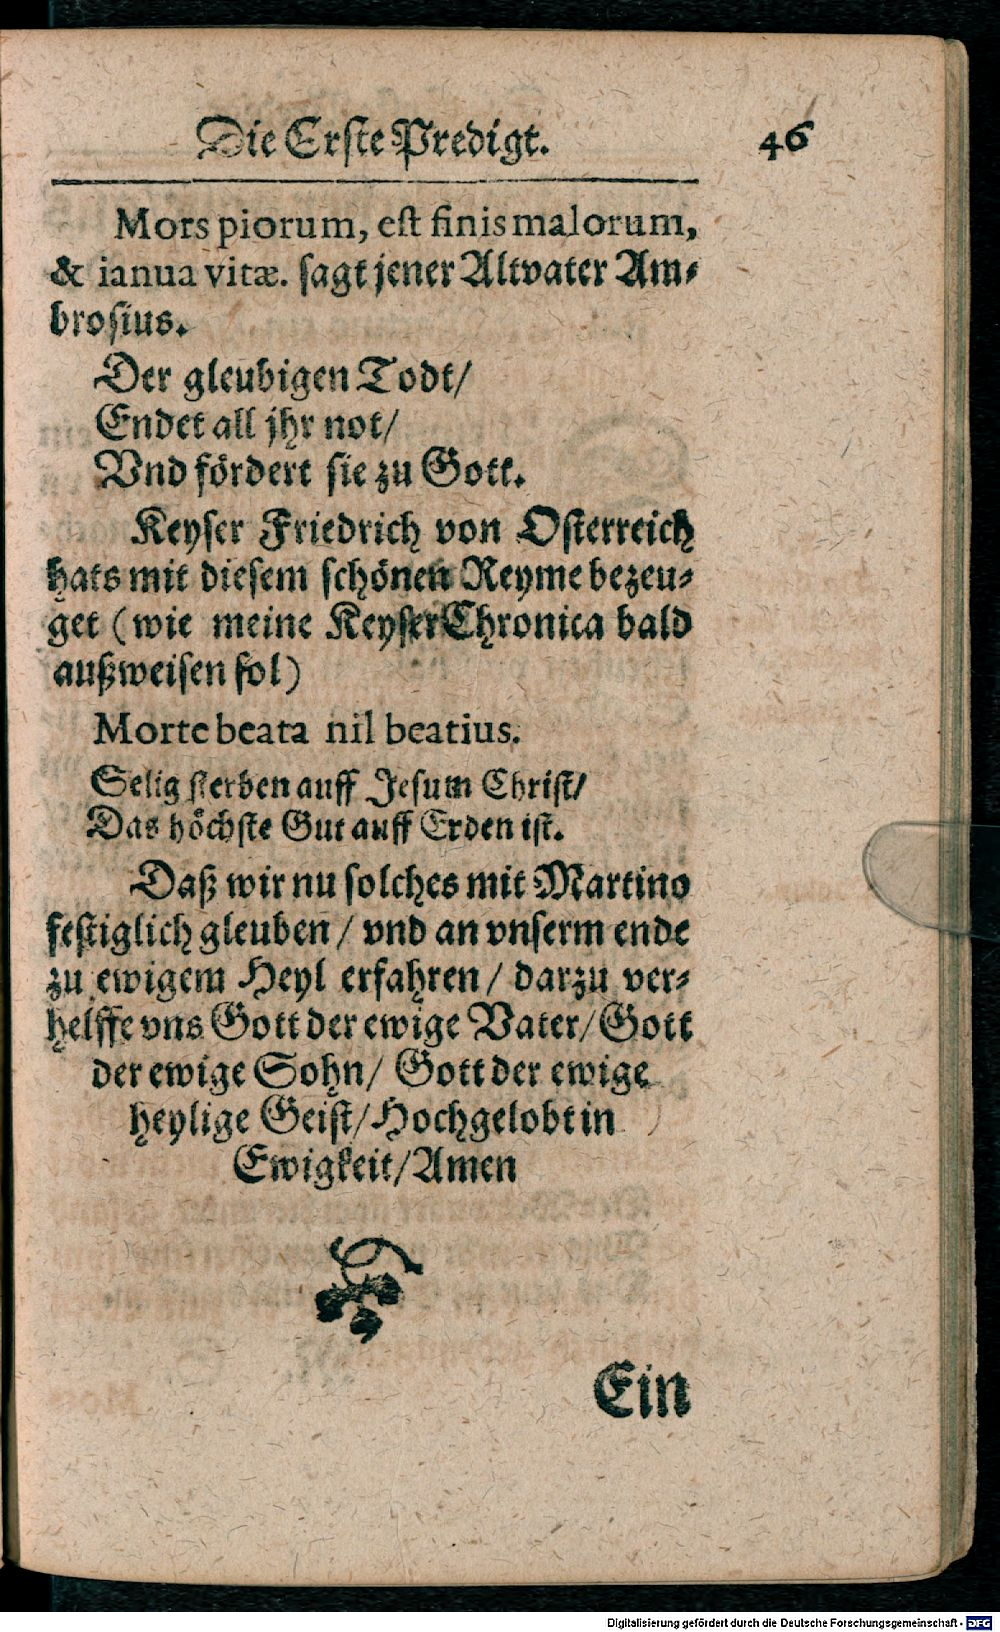 Die Erste Predigt. 46
Mors piorum, est finis malorum,
& ianua vitæ. sagt jener Altvater Am-
brosius.
Der gleubigen Todt/
Endet all jhr not/
Vnd fördert sie zu Gott.
Keyser Friedrich von Osterreich
hats mit diesem schönen Reyme bezeu-
get (wie meine Keyser Chronica bald
außweisen sol)
Morte beata nil beatius.
Selig sterben auff Jesum Christ/
Das höchste Gut auff Erden ist.
Daß wir nu solches mit Martino
festiglich gleuben / vnd an vnserm ende
zu ewigem Heyl erfahren / darzu ver-
helffe vns Gott der ewige Vater/ Gott
der ewige Sohn/ Gott der ewige
heylige Geist/ Hochgelobt in
Ewigkeit/ Amen
Ein
Digitalisierung gefördert durch die Deutsche Forschungsgemeinschaft - DFG